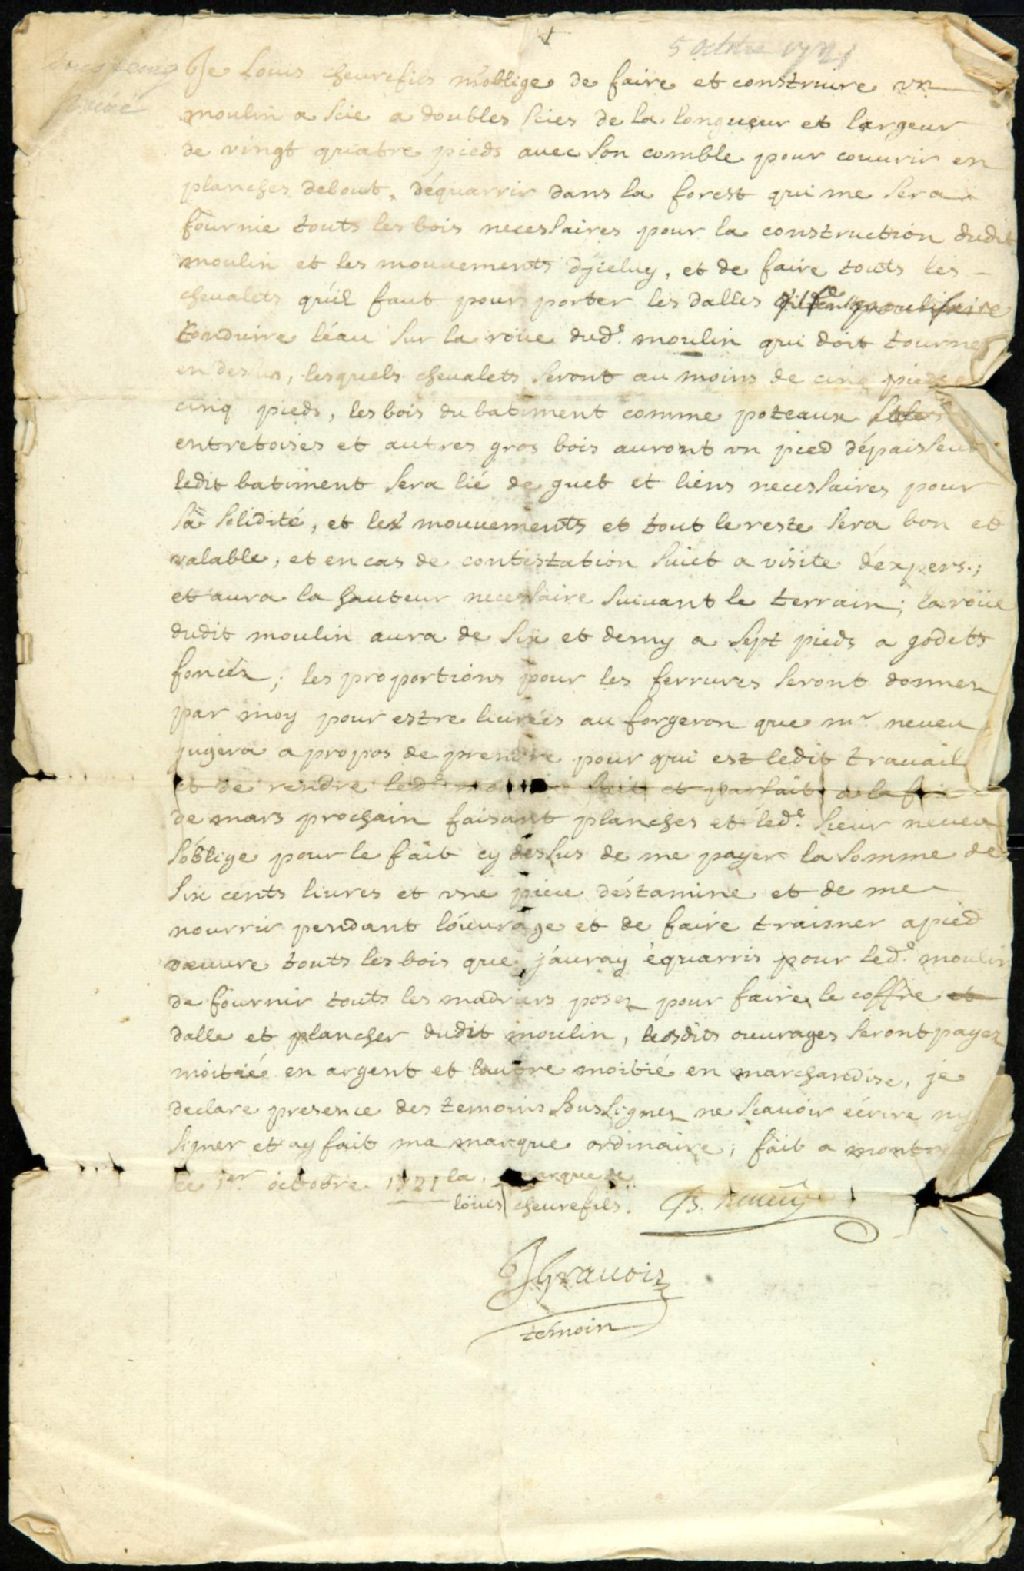 5 octobre 1721
Je Louis cheurefils m'oblige de faire et construire vn
moulin a scie a doubles scies de la longueur et largeur
de vingt quatre pieds avec son comble pour couurir en
planches debout, d'équarrir dans la forest qui me sera
fournie touts les bois necessaires pour la construction dudit
moulin et les mouuements d'jceluy, et de faire touts les
cheualets qu'il faut pour porter les dalles
Conduire l'éau sur la roüe dud.t moulin qui doit tourner
en dessus, lesquels cheualets seront au moins de cinq pieds
cinq pieds, les bois du batiment comme poteaux
entretoises et autres gros bois auront vn pied d'épaisseur
ledit batiment sera lié de guet et liens necessaires pour
sa solidité, et les mouuements et tout le reste sera bon et
valable, et en cas de contestation suiet a visite d'expers;
et aura la hauteur necessaire suiuant le terrain; la roüe
dudit moulin aura de six et demy a sept pieds a godets
; les proportions pour les ferrures seront donnez
par moy pour estre liurées au forgeron que m.r neueu
jugera a propos de prendre pour qui est ledit trauail
et de rendre led.t moulin fait et parfait a la fin
de mars prochain faisant planches et led.t sieur neueu
s'oblige pour le fait cy dessus de me payer la somme de
six cents liures et vne piece d'éstamine et de me
nourrir pendant l'ouurage et de faire traisner a pied
d'œuure touts les bois que j'auray équarris pour led.t moulin
de fournir touts les madriers posez pour faire le coffre et
dalle et plancher dudit moulin, lesdits ouurages seront payez
moitiée en argent et l'autre moitié en marchandise, je
declare presence des temoins soussignez ne scauoir écrire ny
signer et ay fait ma marque ordinaire; fait a
ce 1er octobre 1721 la marque de
loüis cheurefils. B. neueu
J Grauoiz
temoin